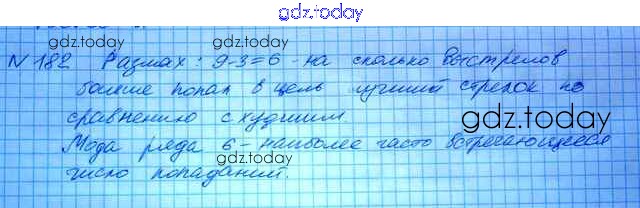 gdz.today
gdz.today
N 182 Размах: 9-3=6 - на сколько выстрелов
gdz.today
больше попал в цель лучший стрелок по
сравнению с худшим
gdz.today
Мода ряда 6 - наиболее часто встречающееся
gdz.today
число попаданий.
gdz.today